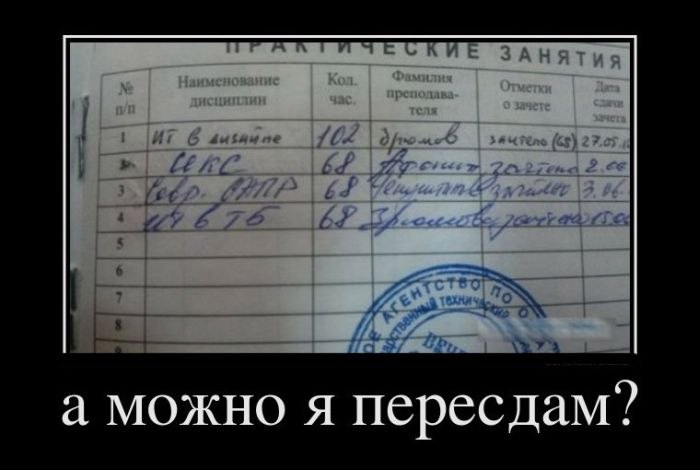 ПРАКТИЧЕСКИЕ ЗАНЯТИЯ
№ п/п Наименование дисциплин Кол. час. Фамилия преподава- теля Отметки о зачете Дата сдачи зачета
1 ИТ в дизайне 102 зачтено (65) 27.05
2 СЕКС 68 Афонин зачтено 2.06
3 68 зачтено 3.06
4 ИЧ в ТБ 68 зачтено
5
6
7
8
АГЕНТСТВО ПО О
ТЕХНИЧЕСКИЙ
а можно я пересдам?